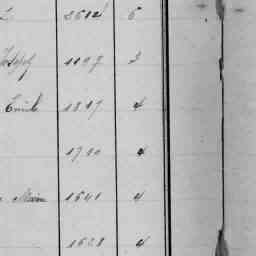 2612 6
1197 3
Emile 1817 4
1790 4
Marie 1641 4
1628 4